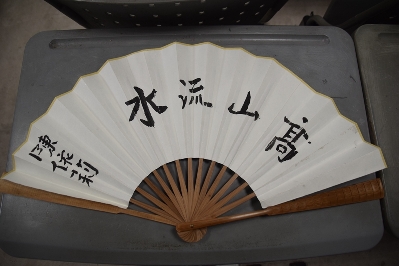 高山流水
陳依莉